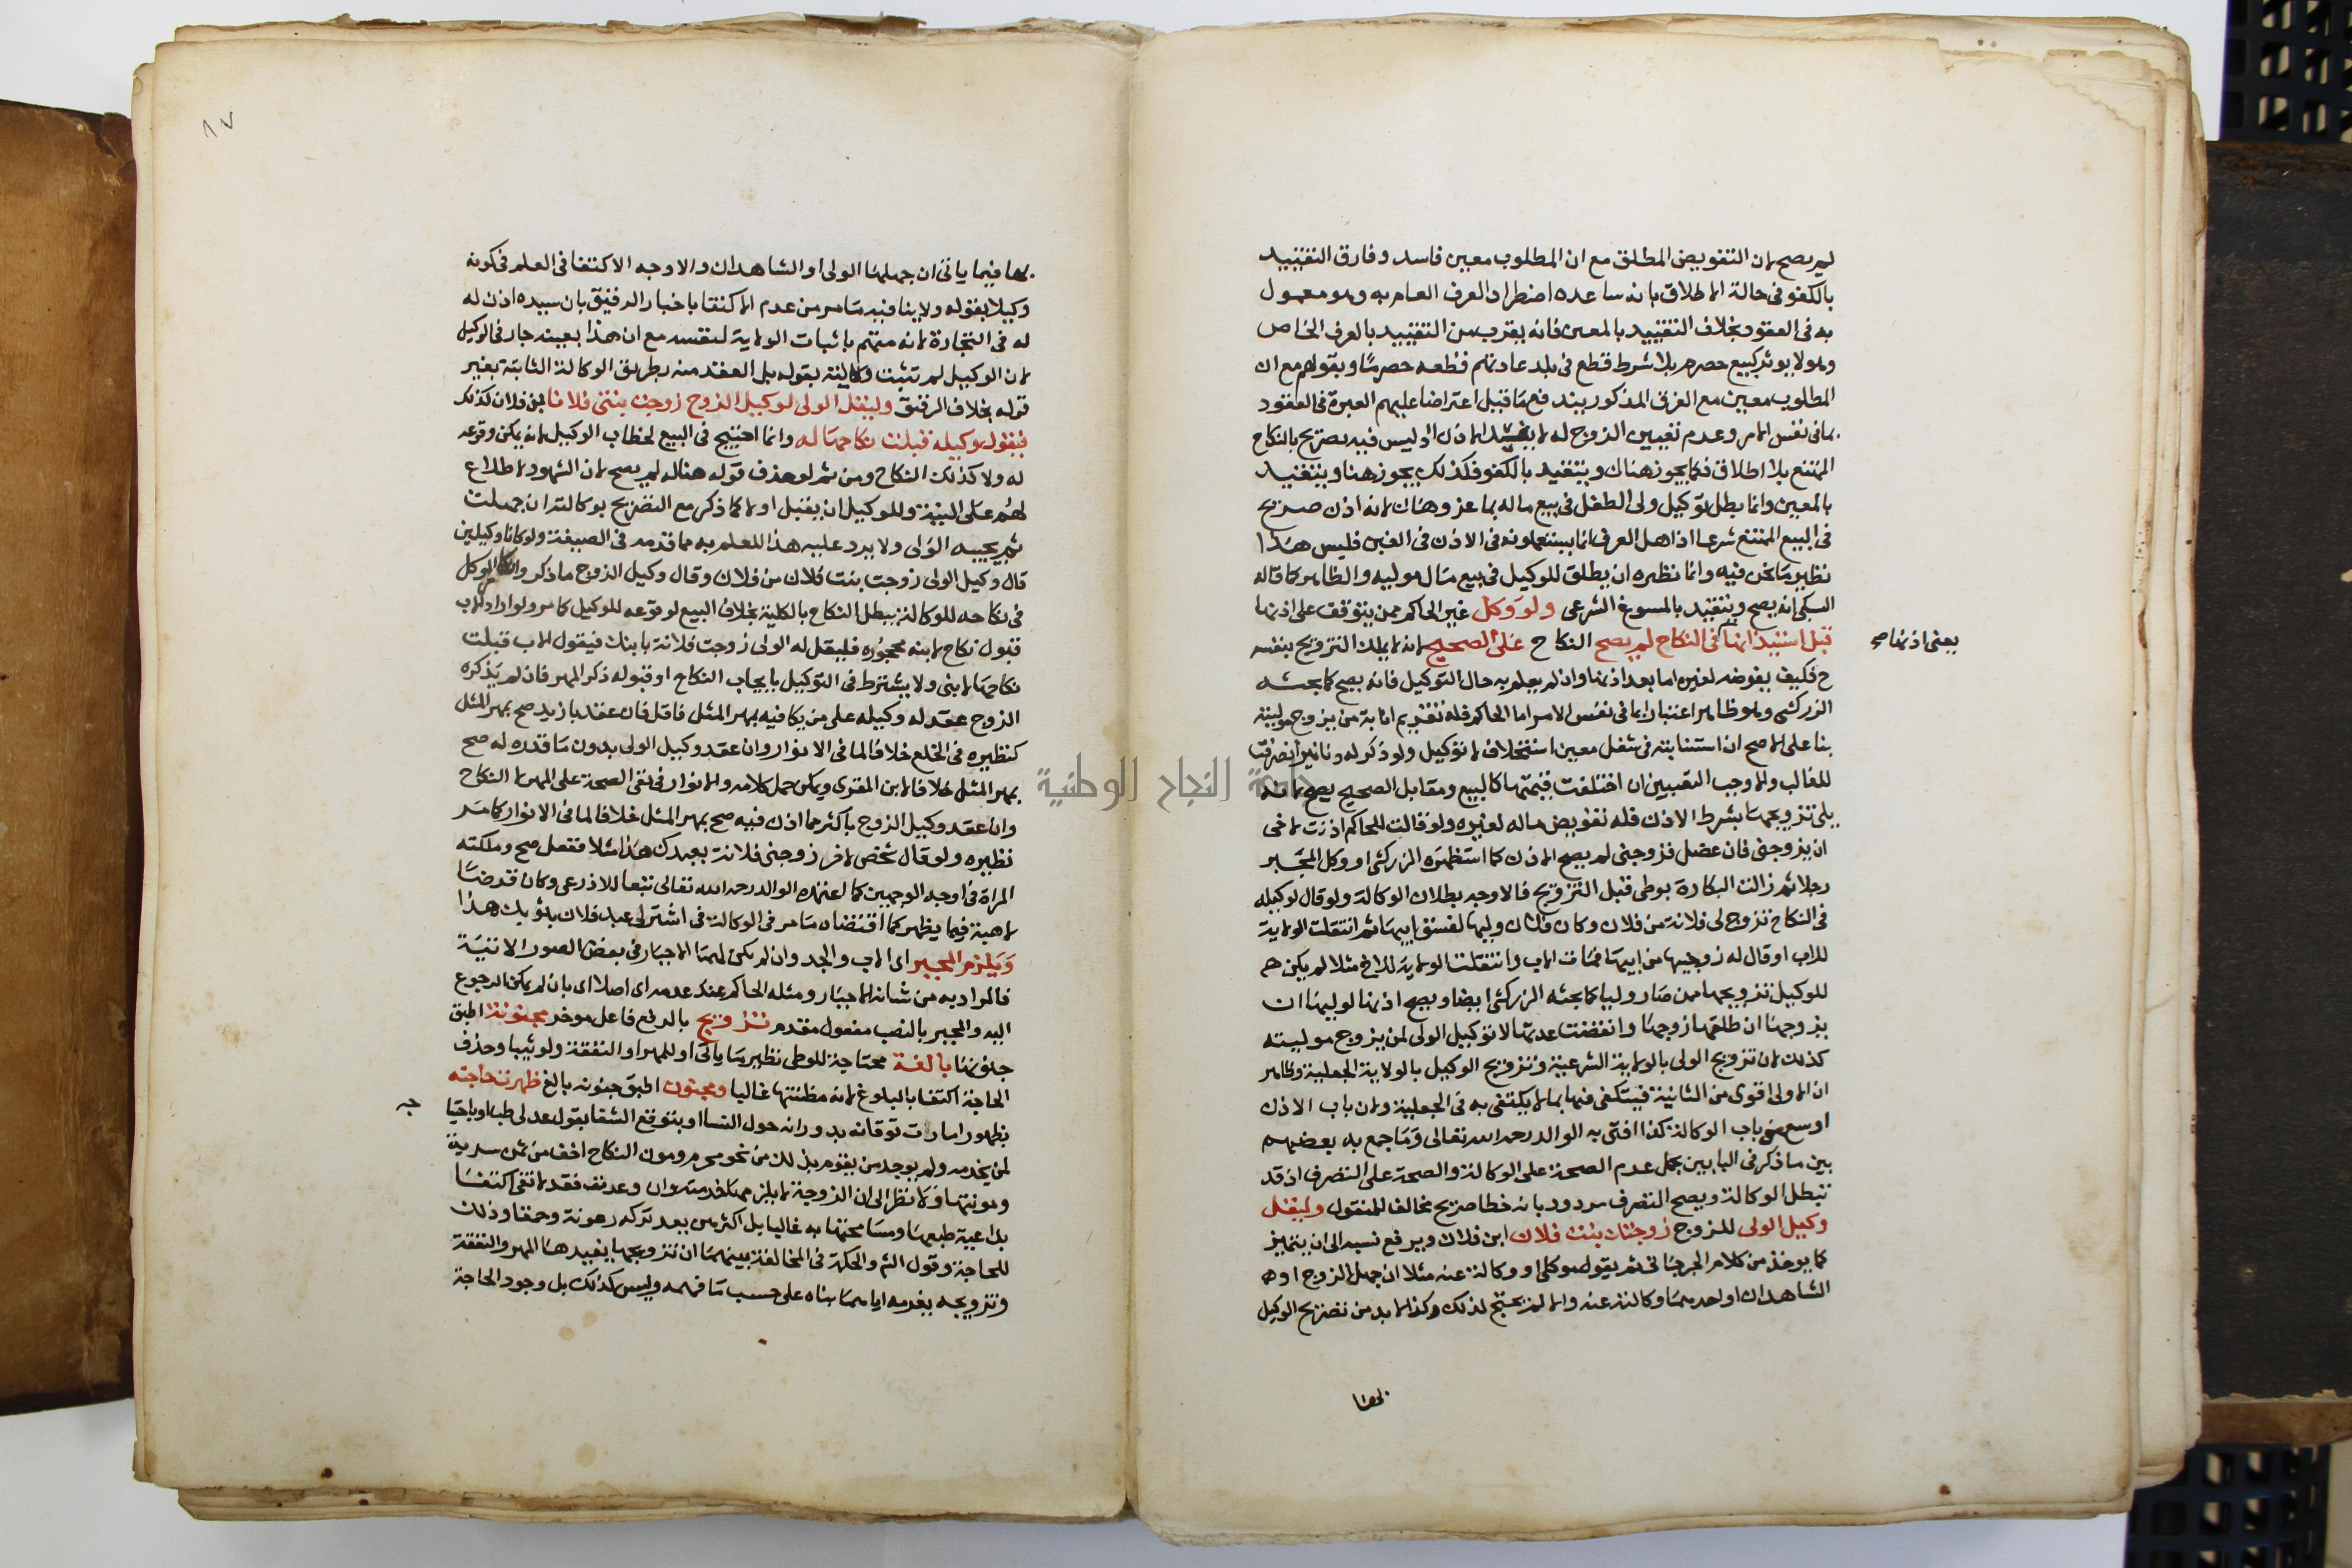 لم يصح لان التفويض المطلق مع ان المطلوب معين فاسد وفارق التقييد
بالكفو فى حالة الاطلاق بانه ساعده اضطراد العرف العام به وهو معمول
به فى العقود بخلاف التقييد بالمعين فانه يقرب من التقييد بالعرف الخاص
وهو لا يوثر كبيع حصرم بلا شرط قطع فى بلد عادتهم قطعه حصرما وبقولهم مع ان
المطلوب معين مع الفرق المذكور يندفع ما قيل اعتراضا عليهم العبرة فى العقود
بما فى نفس الامر وعدم تعيين الزوج له لا يفسد الاذن اذ ليس فيه تصريح بالنكاح
الممتنع بل اطلاق فكما يجوز هناك ويتقيد بالكفو فكذلك يجوز هنا ويتقيد
بالمعين وانما بطل توكيل ولى الطفل فى بيع ماله بما عز وهان لانه اذن صريح
فى البيع الممتنع شرعا اذ اهل العرف انما يستعملونه فى الاذن فى الغبن فليس هذا
نظير ما نحن فيه وانما نظيره ان يطلق للوكيل فى بيع مال موليه والظاهر كما قاله
السبكى انه يصح ويتقيد بالمسوغ الشرعى ولو وكل غير الحاكم ممن يتوقف على اذنها
قبل استيذانها فى النكاح لم يصح النكاح على الصحيح لانه لا يملك التزويج بنفسه
يعنى اذنها صح
ح فكيف يفوضه لغيره اما بعد اذنها وان لم يعلم به حال التوكيل فانه يصح كما بحثه
الزركشى وهو ظاهر اعتبارا بما فى نفس الامر اما الحاكم فله تقديم انابة من يزوج موليته
بنا على الاصح ان استنابته فى شغل معين استخلاف لا توكيل ولو ذكر له دنانير انصرفت
للغالب والا وجب التعيين ان اختلفت قيمتها كالبيع ومقابل الصحيح يصح لانه
يلى تزويجها بشرط الاذن فله تفويض ماله لغيره ولو قالت للحاكم اذنت لاخى
ان يزوجنى فان عضل فزوجنى لم يصح الاذن كما استظهره الزركشى او وكل المجبر
رجلا ثم زالت البكارة بوطى قبل التزويج فالاوجه بطلان الوكالة ولو قال لوكيله
فى النكاح تزوج لى فلانة من فلان وكان فلان وليها لفسق ابيها ثم انتقلت الولاية
للاب او قال له زوجنيها من ابيها فمات الاب وانتقلت الولاية للاخ مثلا لم يكن
للوكيل تزويجها ممن صار وليا كما بحثه الزركشى ايضا ويصح اذنها لوليها ان
يزوجها ان طلقها زوجها وانقضت عدتها لا توكيل الولى لمن يزوج موليته
كذلك لان تزويج الولى بالولاية الشرعية وتزويج الوكيل بالولاية الجعلية وظاهر
ان الاولى اقوى من الثانية فيكتفى فيها بما لا يكتفى به فى الجعلية ولان باب الاذن
اوسع من باب الوكالة كذا افتى به الوالد رحمه الله تعالى وما جمع به بعضهم
بين ما ذكر فى البابين بحمل عدم الصحة على الوكالة والصحة على التصرف اذ قد
تبطل الوكالة ويصح التصرف مردود بانه خطا صريح مخالف للمنقول وليقل
وكيل الولى للزوج زوجتك بنت فلان ابن فلان ويرفع نسبه الى ان يتميز
كما يوخذ من كلام الجرجانى ثم يقول موكلى او وكالة عنه مثلا ان جهل الزوج او
الشاهدان او احدهما وكالته عنه والا لم يحتج لذلك وكذا لابد من تصريح الوكيل
بها
١٧
بها فيما ياتى ان جهلها الولى او الشاهدان والاوجه الاكتفا فى العلم فى كونه
وكيلا بقوله ولا ينافيه ما مر من عدم الاكتفا باخبار الرقيق بان سيده اذن له
له فى التجارة لانه متهم باثبات الولاية لنفسه مع ان هذا بعينه جار فى الوكيل
لان الوكيل لم تثبت وكالته بقوله بل العقد منه بطريق الوكالة الثابتة بغير
قوله بخلاف الرقيق وليقل الولى لوكيل الزوج زوجت بنتى فلانا ابن فلان كذلك
فيقول وكيله قبلت نكاحها له وانما احتيج فى البيع لخطاب الوكيل لانه يمكن وقوعه
له ولا كذلك النكاح ومن ثم لو حذف قوله هنا له لم يصح لان الشهود لا اطلاع
لهم على النية وللوكيل ان يقبل اولا كما ذكر مع التصريح بوكالته ان جهلت
ثم يجيبه الولى ولا يرد عليه هذا للعلم به مما قدمه فى الصيغة ولو كانا وكيلين
قال وكيل الولى زوجت بنت فلان من فلان وقال وكيل الزوج ما ذكر وانكار الموكل
فى نكاحه للوكالة يبطل النكاح بالكلية بخلاف البيع لوقوعه للوكيل كما مر ولو اراد الاب
قبول نكاح لابنه محجوره فليقل له الولى زوجت فلانة بابنك فيقول الاب قبلت
نكاحها لابنى ولا يشترط فى التوكيل بايجاب النكاح او قبوله ذكر المهر فان لم يذكره
الزوج عقد له وكيله على من يكافيه بمهر المثل فاقل فان عقد بازيد صح بمهر المثل
كنظيره فى الخلع خلافا لما فى الانوار وان عقد وكيل الولى بدون ما قدره له صح
بمهر المثل خلافا لابن المقرى ويمكن حمل كلامه والانوار فى نفى الصحة على المهر لا النكاح
وان عقد وكيل الزوج باكثر مما اذن فيه صح بمهر المثل خلافا لما فى الانوار كما مر
نظيره ولو قال شخص لاخر زوجنى فلانة بعبدك هذا مثلا ففعل صح وملكته
المراة فى اوجه الوجهين كما اعتمده الوالد رحمه الله تعالى تبعا للاذرعى وكان قرضا
لا هبة فيما يظهر كما اقتضاه ما مر فى الوكالة فى اشتر لى عبد فلان بثوبك هذا
ويلزم المجبر اى الاب والجد وان لم يكن لهما الاجبار فى بعض الصور الاتية
فالمراد به من شانه الاجبار ومثله الحاكم عند عدمه اى اصلا اى بان لم يمكن الرجوع
اليه والمجبر بالنصب مفعول مقدم تزويج بالرفع فاعل موخر مجنونة اطبق
جنونها بالغة محتاجة للوطى نظير ما ياتى او للمهر او النفقة ولو ثيبا وحذف
الحاجة اكتفا بالبلوغ لانه مظنتها غالبا ومجنون اطبق جنونه بالغ ظهرت حاجته
بظهور امارات توقانه بدورانه حول النسا او بتوقع الشفا بقول عدلى طب او باحتيا
جه
لمن يخدمه ولم يوجد من يقوم بذلك من نحو محرم ومون النكاح اخف من ثمن سرية
ومونتها ولا نظر الى ان الزوجة لا يلزمها خدمته وان وعدته فقد لا تفى اكتفا
بداعية طبعها ومسامحتها به غالبا بل اكثرهن يعد تركه رعونة وحمقا وذلك
للحاجة وقول الشم والحكمة فى المخالفة بينهما ان تزويجها يفيدها المهر والنفقة
وتزويجه يغرمه اياهما بناه على حسب ما فهمه وليس كذلك بل وجود الحاجة
جامعة النجاح الوطنية